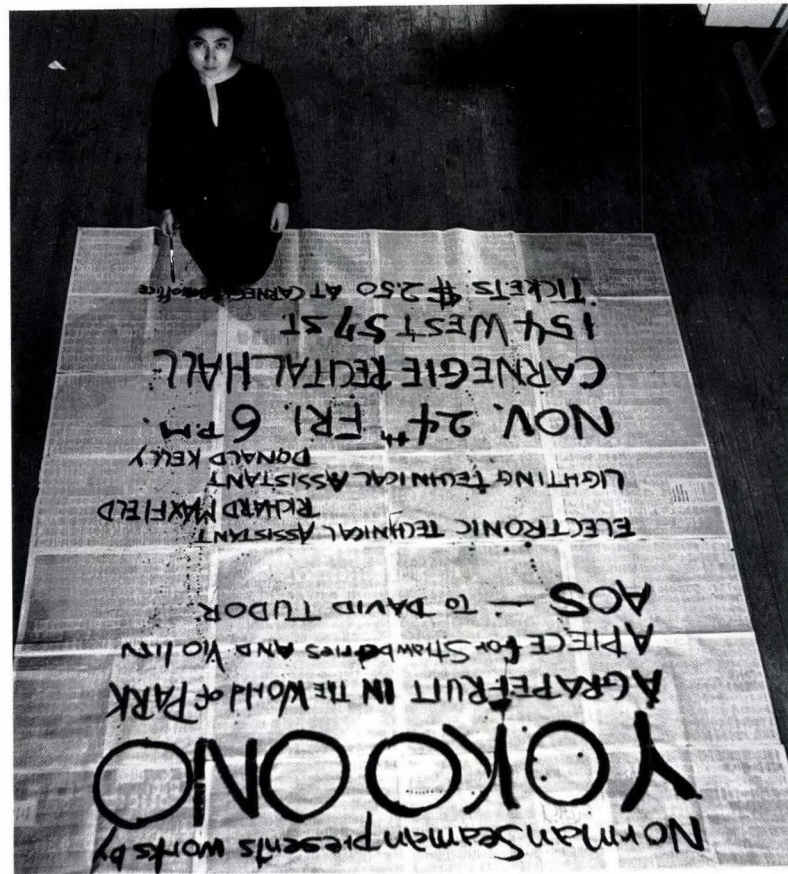 Norman Seaman presents works by
YOKO ONO
A GRAPEFRUIT IN THE WORLD of PARK
A PIECE for StrawbeRRies AND VIOLIN
AOS — TO DAVID TUDOR
ELECTRONIC TECHNICAL ASSISTANT
RICHARD MAXFIELD
LIGHTING TECHNICAL ASSISTANT
DONALD KELLY
NOV. 24th FRI. 6 P.M.
CARNEGIE RECITAL HALL
154 WEST 57 ST.
TICKETS $2.50 AT CARNEGIE office